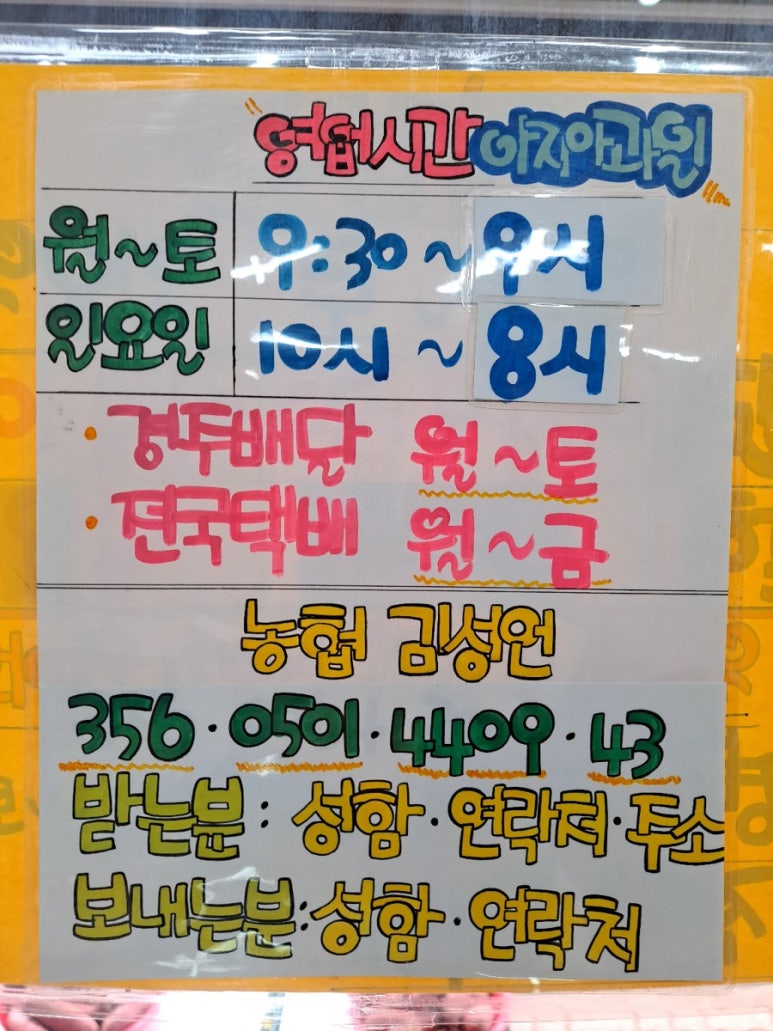 "영업시간 아지아과일"
월~토 9:30 ~ 9시
일요일 10시 ~ 8시
• 경주배달 월~토
• 전국택배 월~금
농협 김성언
356·0501·4409·43
받는분: 성함·연락처·주소
보내는분: 성함·연락처